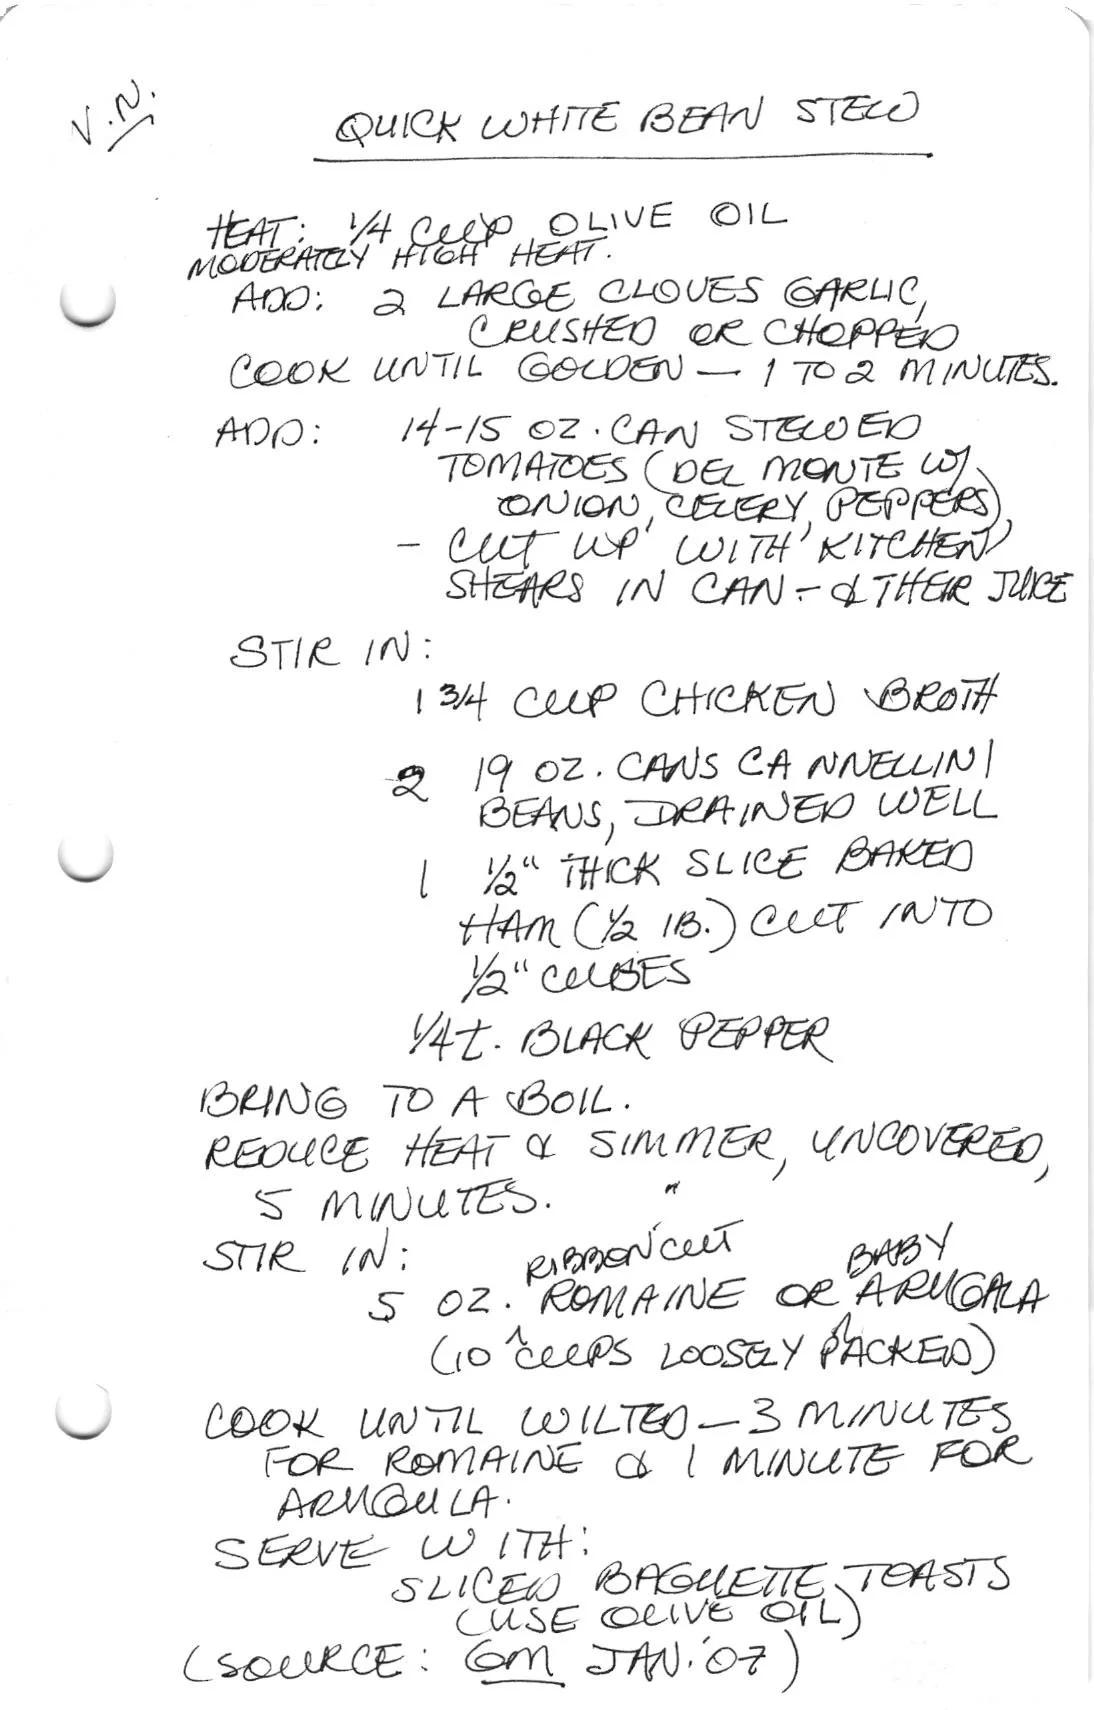 V.N.
QUICK WHITE BEAN STEW
HEAT: 1/4 CUP OLIVE OIL
MODERATELY HIGH HEAT.
ADD: 2 LARGE CLOVES GARLIC,
CRUSHED OR CHOPPED
COOK UNTIL GOLDEN — 1 TO 2 MINUTES.
ADD: 14-15 OZ. CAN STEWED
TOMATOES (DEL MONTE W/
ONION, CELERY, PEPPERS),
- CUT UP WITH KITCHEN
SHEARS IN CAN - & THEIR JUICE
STIR IN:
1 3/4 CUP CHICKEN BROTH
2 19 OZ. CANS CANNELLINI
BEANS, DRAINED WELL
1 1/2" THICK SLICE BAKED
HAM (1/2 lB.) CUT INTO
1/2" CUBES
1/4 t. BLACK PEPPER
BRING TO A BOIL.
REDUCE HEAT & SIMMER, UNCOVERED,
5 MINUTES.
STIR IN: "RIBBON" CUT BABY
5 OZ. ROMAINE OR ARUGALA
(10 CUPS LOOSELY PACKED)
COOK UNTIL WILTED — 3 MINUTES
FOR ROMAINE & 1 MINUTE FOR
ARUGULA.
SERVE WITH:
SLICED BAGUETTE TOASTS
(USE OLIVE OIL)
(SOURCE: GM JAN. '07)